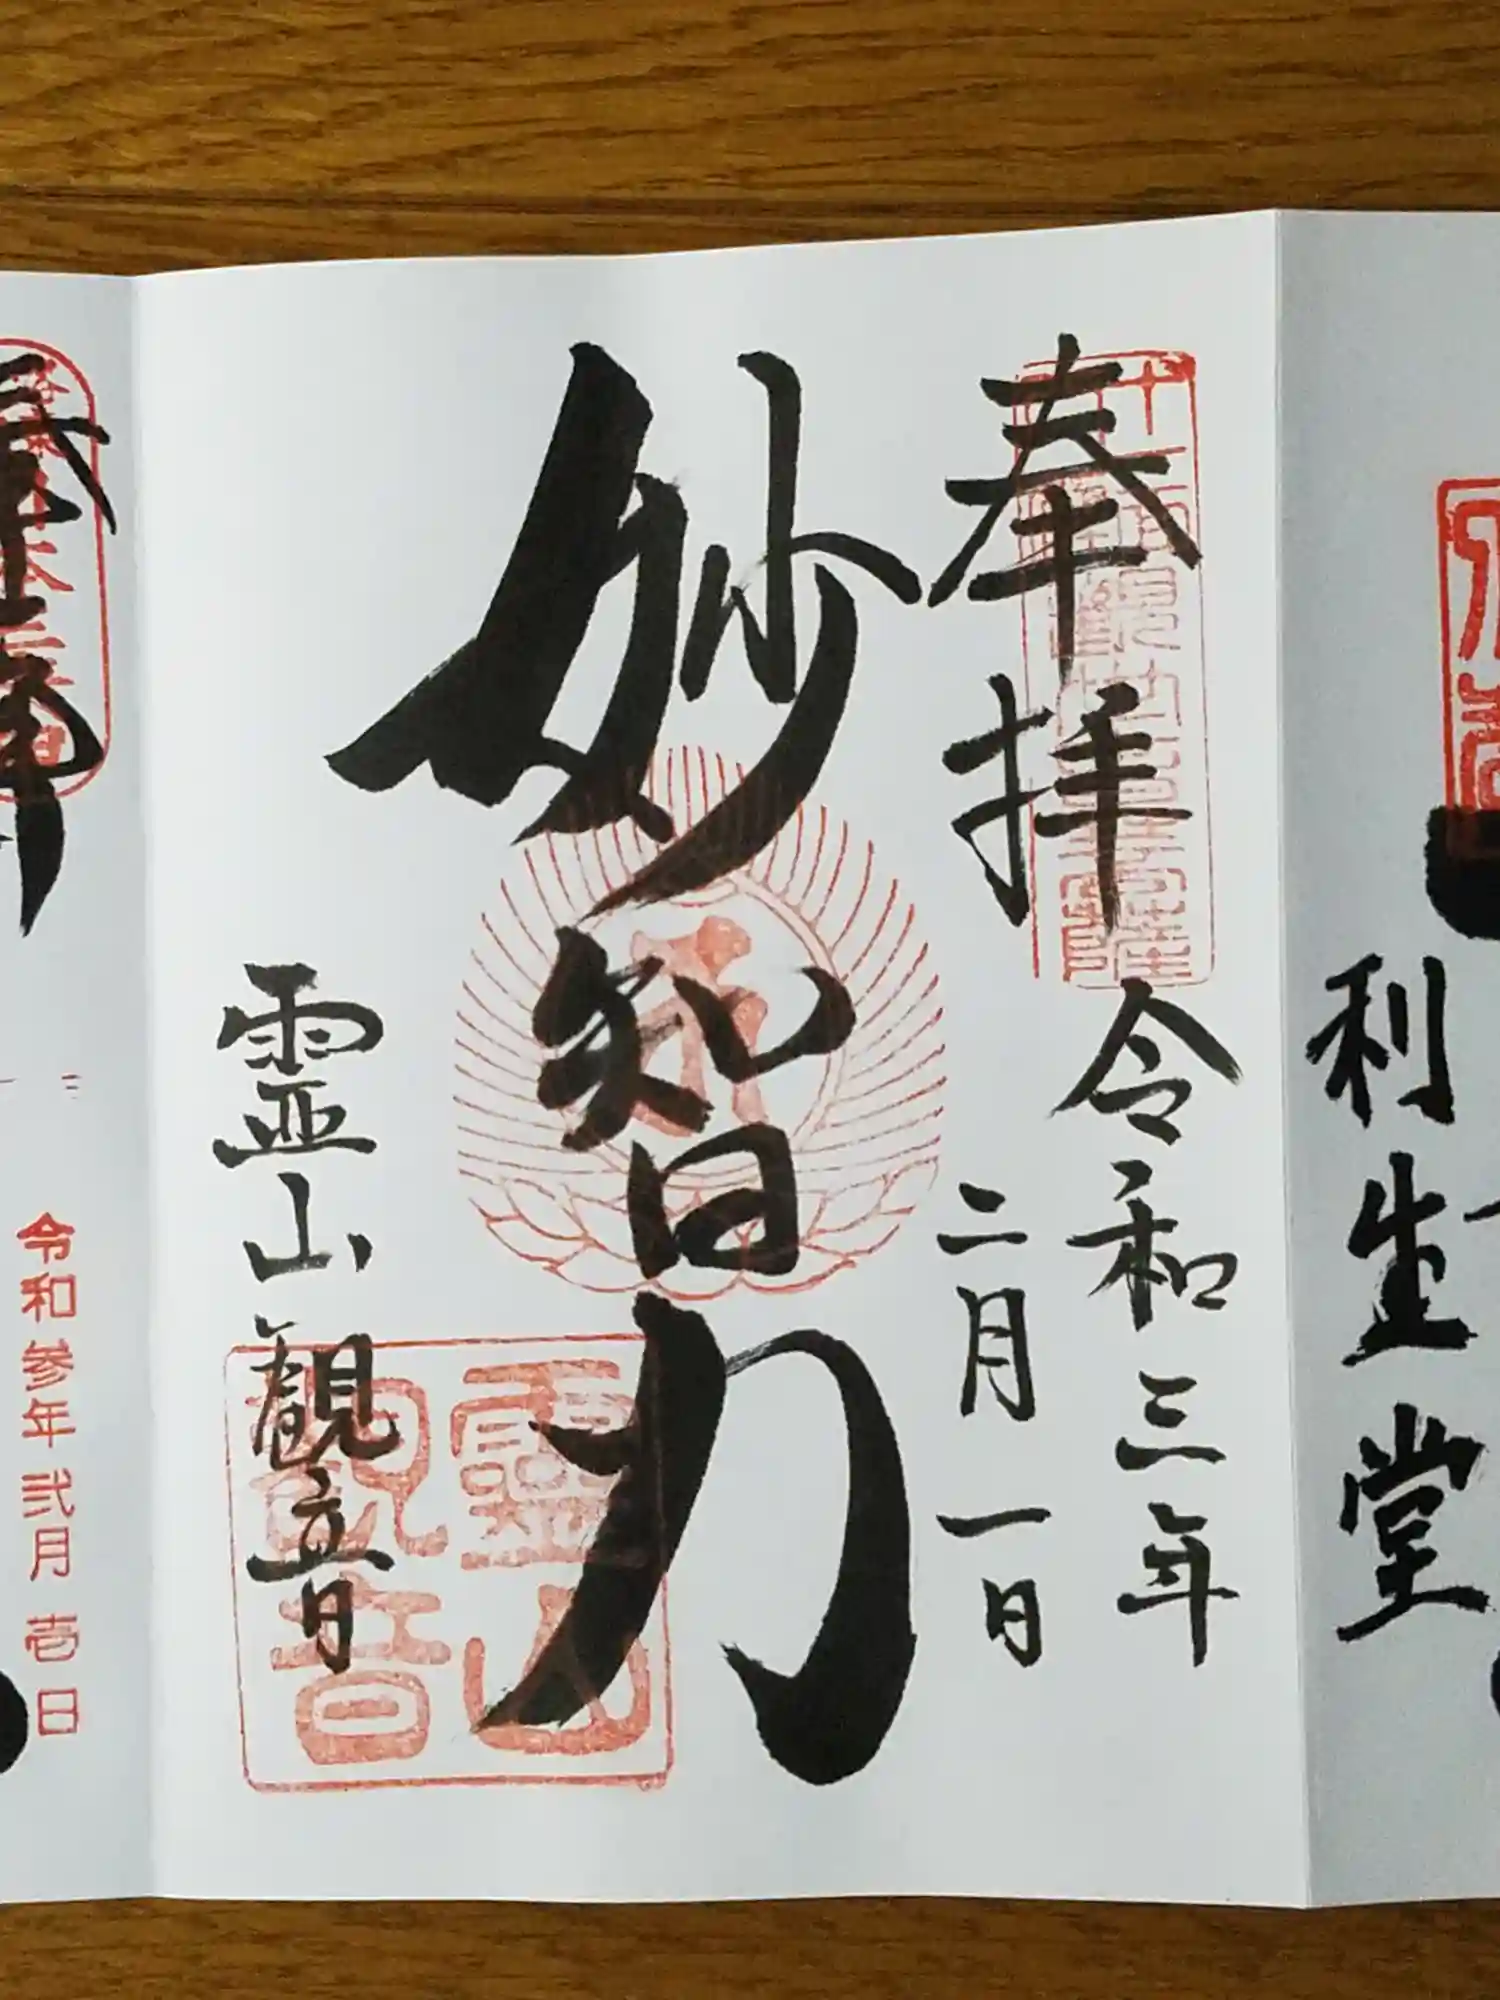 利生堂
奉拝
令和三年
二月一日
妙智力
霊山観音
霊山
観音
奉拝
令和参年弐月壱日